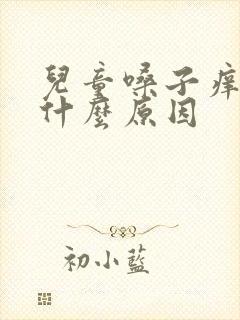 兒童嗓子癢
什麼原因
初小藍